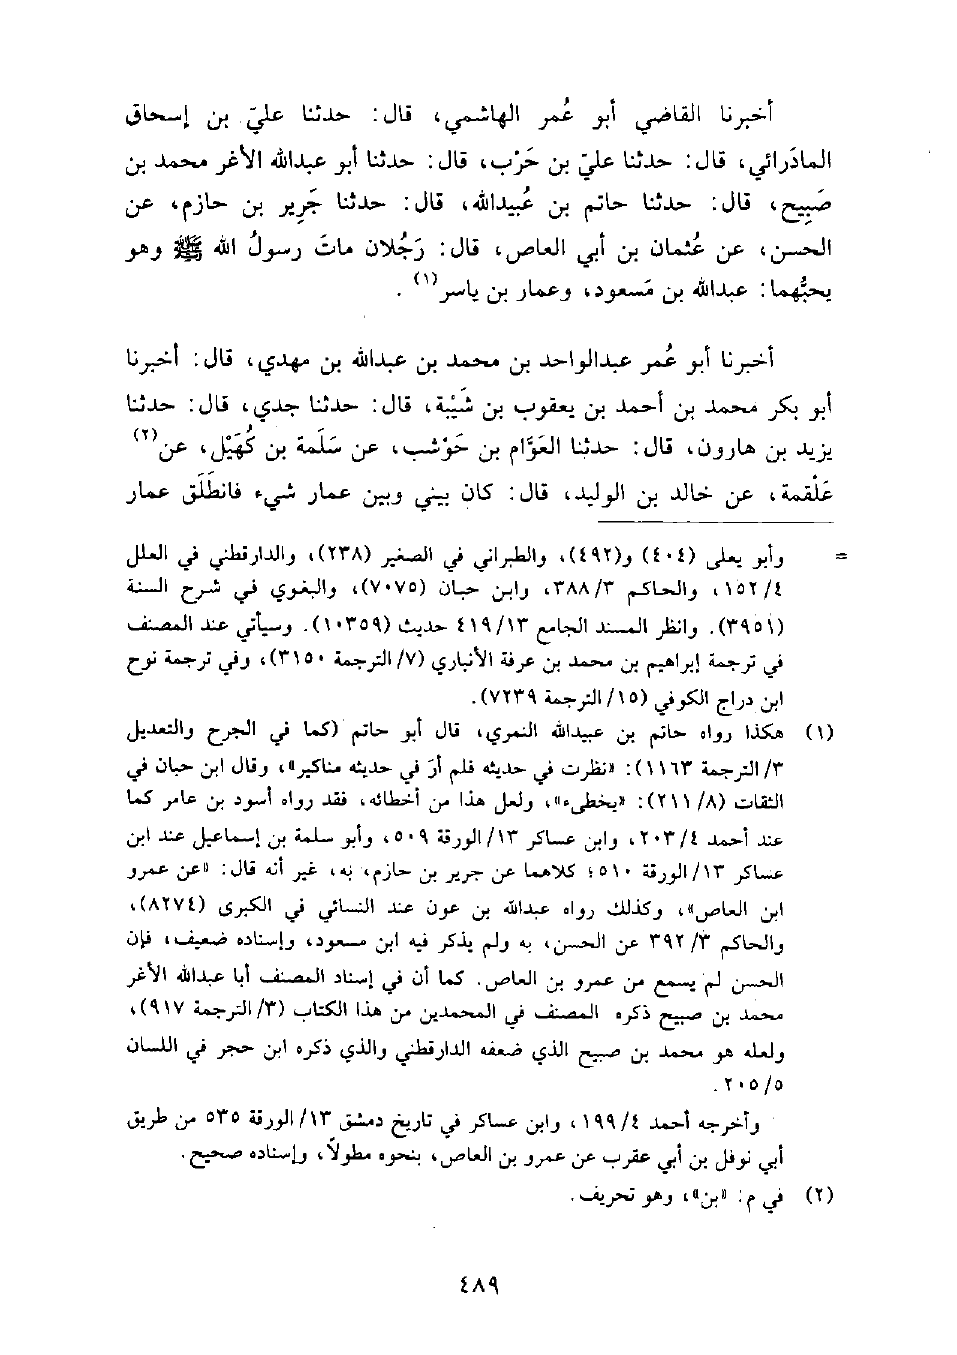 أخبرنا القاضي أبو عُمر الهاشمي، قال: حدثنا عليّ بن إسحاق
المادَرائي، قال: حدثنا عليّ بن حَرْب، قال: حدثنا أبو عبدالله الأغر محمد بن
صَبِيح، قال: حدثنا حاتم بن عُبيدالله، قال: حدثنا جَرِير بن حازم، عن
الحسن، عن عُثمان بن أبي العاص، قال: رَجُلان ماتَ رسولُ الله ﷺ وهو
يحبُّهما: عبدالله بن مَسعود، وعمار بن ياسر(١) .
أخبرنا أبو عُمر عبدالواحد بن محمد بن عبدالله بن مهدي، قال: أخبرنا
أبو بكر محمد بن أحمد بن يعقوب بن شَيْبة، قال: حدثنا جدي، قال: حدثنا
يزيد بن هارون، قال: حدثنا العَوَّام بن حَوْشب، عن سَلَمة بن كُهَيْل، عن(٢)
عَلْقمة، عن خالد بن الوليد، قال: كان بيني وبين عمار شيء فانطَلَق عمار
= وأبو يعلى (٤٠٤) و(٤٩٢)، والطبراني في الصغير (٢٣٨)، والدارقطني في العلل
٤/ ١٥٢، والحاكم ٣/ ٣٨٨، وابن حبان (٧٠٧٥)، والبغوي في شرح السنة
(٣٩٥١). وانظر المسند الجامع ١٣/ ٤١٩ حديث (١٠٣٥٩). وسيأتي عند المصنف
في ترجمة إبراهيم بن محمد بن عرفة الأنباري (٧/ الترجمة ٣١٥٠)، وفي ترجمة نوح
ابن دراج الكوفي (١٥/ الترجمة ٧٢٣٩).
(١) هكذا رواه حاتم بن عبيدالله النمري، قال أبو حاتم (كما في الجرح والتعديل
٣/ الترجمة ١١٦٣): «نظرت في حديثه فلم أرَ في حديثه مناكير»، وقال ابن حبان في
الثقات (٨/ ٢١١): «يخطىء»، ولعل هذا من أخطائه، فقد رواه أسود بن عامر كما
عند أحمد ٤/ ٢٠٣، وابن عساكر ١٣/ الورقة ٥٠٩، وأبو سلمة بن إسماعيل عند ابن
عساكر ١٣/ الورقة ٥١٠؛ كلاهما عن جرير بن حازم، به، غير أنه قال: «عن عمرو
ابن العاص»، وكذلك رواه عبدالله بن عون عند النسائي في الكبرى (٨٢٧٤)،
والحاكم ٣/ ٣٩٢ عن الحسن، به ولم يذكر فيه ابن مسعود، وإسناده ضعيف، فإن
الحسن لم يسمع من عمرو بن العاص. كما أن في إسناد المصنف أبا عبدالله الأغر
محمد بن صبيح ذكره المصنف في المحمدين من هذا الكتاب (٣/ الترجمة ٩١٧)،
ولعله هو محمد بن صبيح الذي ضعفه الدارقطني والذي ذكره ابن حجر في اللسان
٥/ ٢٠٥.
وأخرجه أحمد ٤/ ١٩٩، وابن عساكر في تاريخ دمشق ١٣/ الورقة ٥٣٥ من طريق
أبي نوفل بن أبي عقرب عن عمرو بن العاص، بنحوه مطولاً، وإسناده صحيح.
(٢) في م: «بن»، وهو تحريف.
٤٨٩